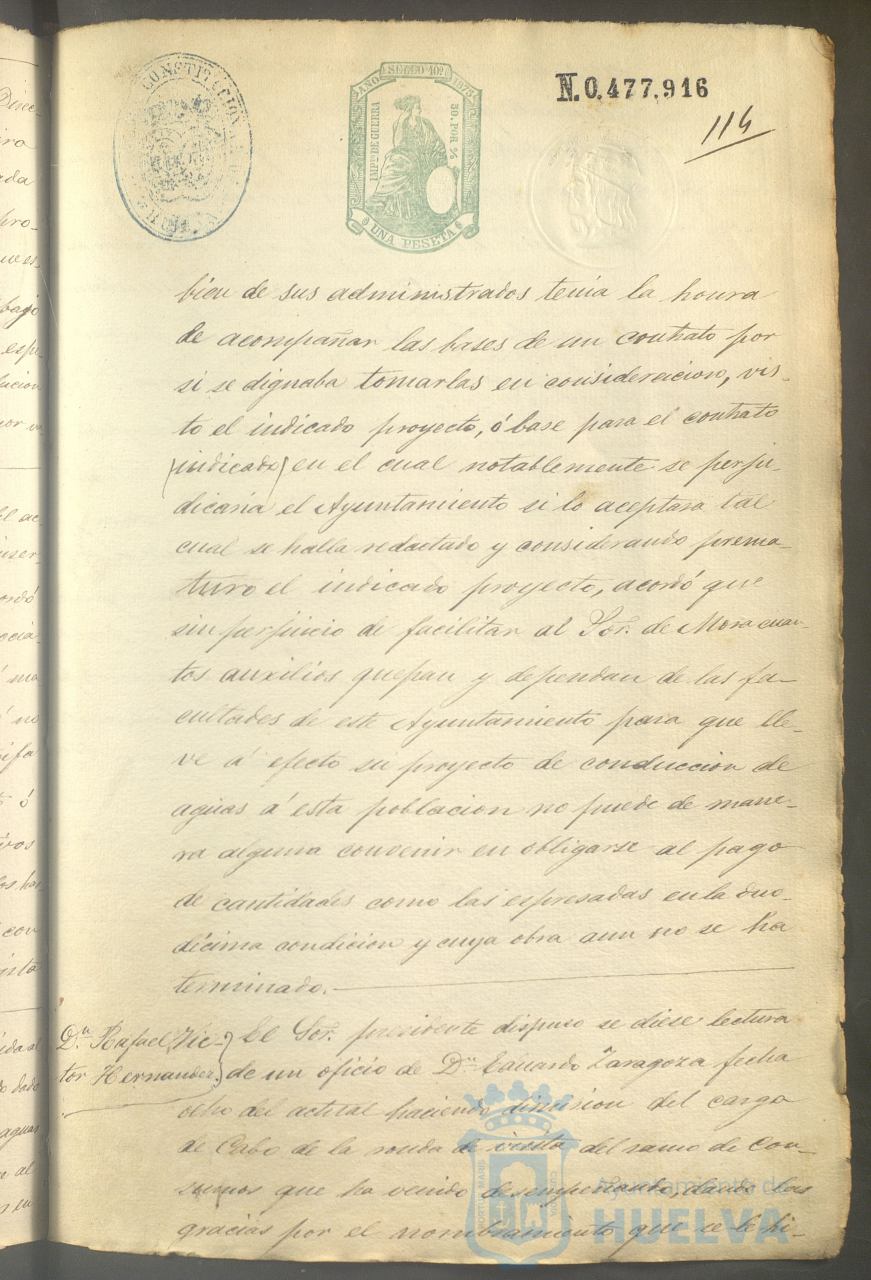 CONSTITUCIONAL
HUELVA
AÑO SELLO 10º 1875
IMPtO DE GUERRA
50 POR %
UNA PESETA
N.0.477,916
114
bien de sus administrados tenia la honra
de acompañar las bases de un contrato por
si se dignaba tomarlas en consideracion, vis-
to el indicado proyecto, ó base para el contrato
(indicado) en el cual notablemente se perju-
dicaria el Ayuntamiento si lo aceptara tal
cual se halla redactado y considerando prema-
turo el indicado proyecto, acordó que
sin perjuicio de facilitar al Sor. de Mora cuan-
tos auxilios quepan y dependan de las fa-
cultades de este Ayuntamiento para que lle-
ve á efecto su proyecto de conduccion de
aguas á esta poblacion no puede de mane-
ra alguna convenir en obligarse al pago
de cantidades como las espresadas en la duo-
décima condicion y cuya obra aun no se ha
terminado.
Dn. Rafael Vic-
tor Hernandez.
El Sor. presidente dispuso se diese lectura
de un oficio de Dn. Eduardo Zaragoza fecha
ocho del actual haciendo dimision del cargo
de Cabo de la ronda de visita del ramo de Con-
sumos que ha venido desempeñando, dando las
gracias por el nombramiento que se le hi-
Ayuntamiento de
HUELVA